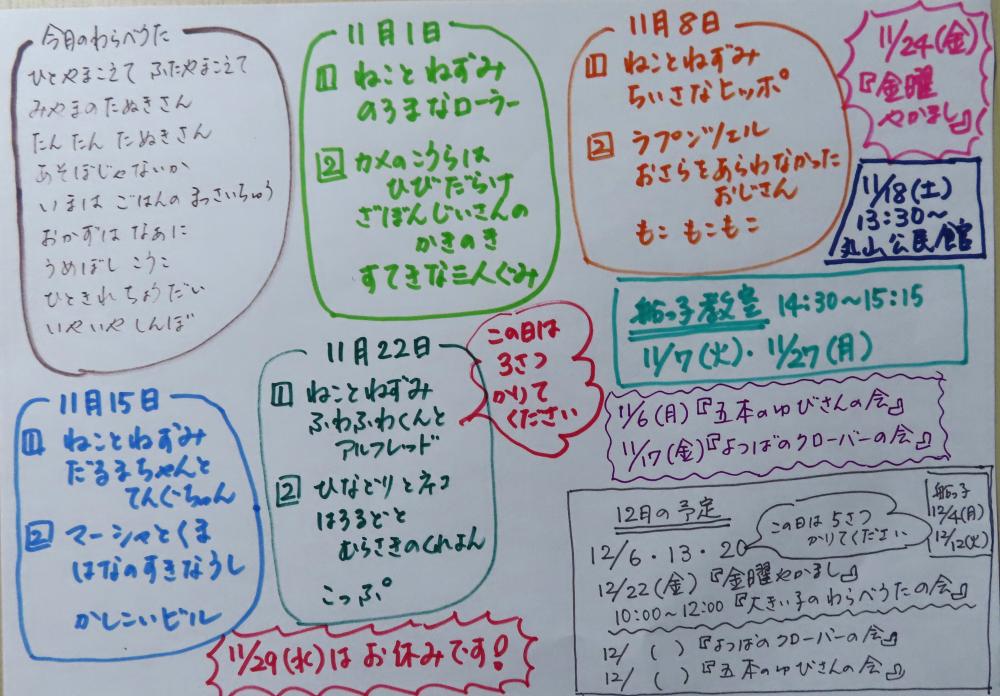 今月のわらべうた
ひとやまこえて ふたやまこえて
みやまのたぬきさん
たんたん たぬきさん
あそぼじゃないか
いまは ごはんの まっさいちゅう
おかずは なあに
うめぼし こうこ
ひときれ ちょうだい
いやいや しんぼ
11月1日
1 ねことねずみ
のろまなローラー
2 カメのこうらは
ひびだらけ
ざぼんじいさんの
かきのき
すてきな三人ぐみ
11月8日
1 ねことねずみ
ちいさなヒッポ
2 ラプンツェル
おさらをあらわなかった
おじさん
もこ もこもこ
11/24(金)
『金曜
やかまし』
11/18(土)
13:30〜
丸山公民館
船っ子教室 14:30〜15:15
11/7(火)・11/27(月)
11/6(月)『五本のゆびさんの会』
11/17(金)『よつばのクローバーの会』
11月15日
1 ねことねずみ
だるまちゃんと
てんぐちゃん
2 マーシャとくま
はなのすきなうし
かしこいビル
11月22日
1 ねことねずみ
ふわふわくんと
アルフレッド
2 ひなどりとネコ
はろるどと
むらさきのくれよん
こっぷ
この日は
3さつ
かりて
ください
11/29(水)は お休みです!
12月の予定
12/6・13・20
この日は 5さつ
かりてください
船っ子
12/4(月)
12/12(火)
12/22(金)『金曜やかまし』
10:00〜12:00『大きい子のわらべうたの会』
12/ ( )『よつばのクローバーの会』
12/ ( )『五本のゆびさんの会』